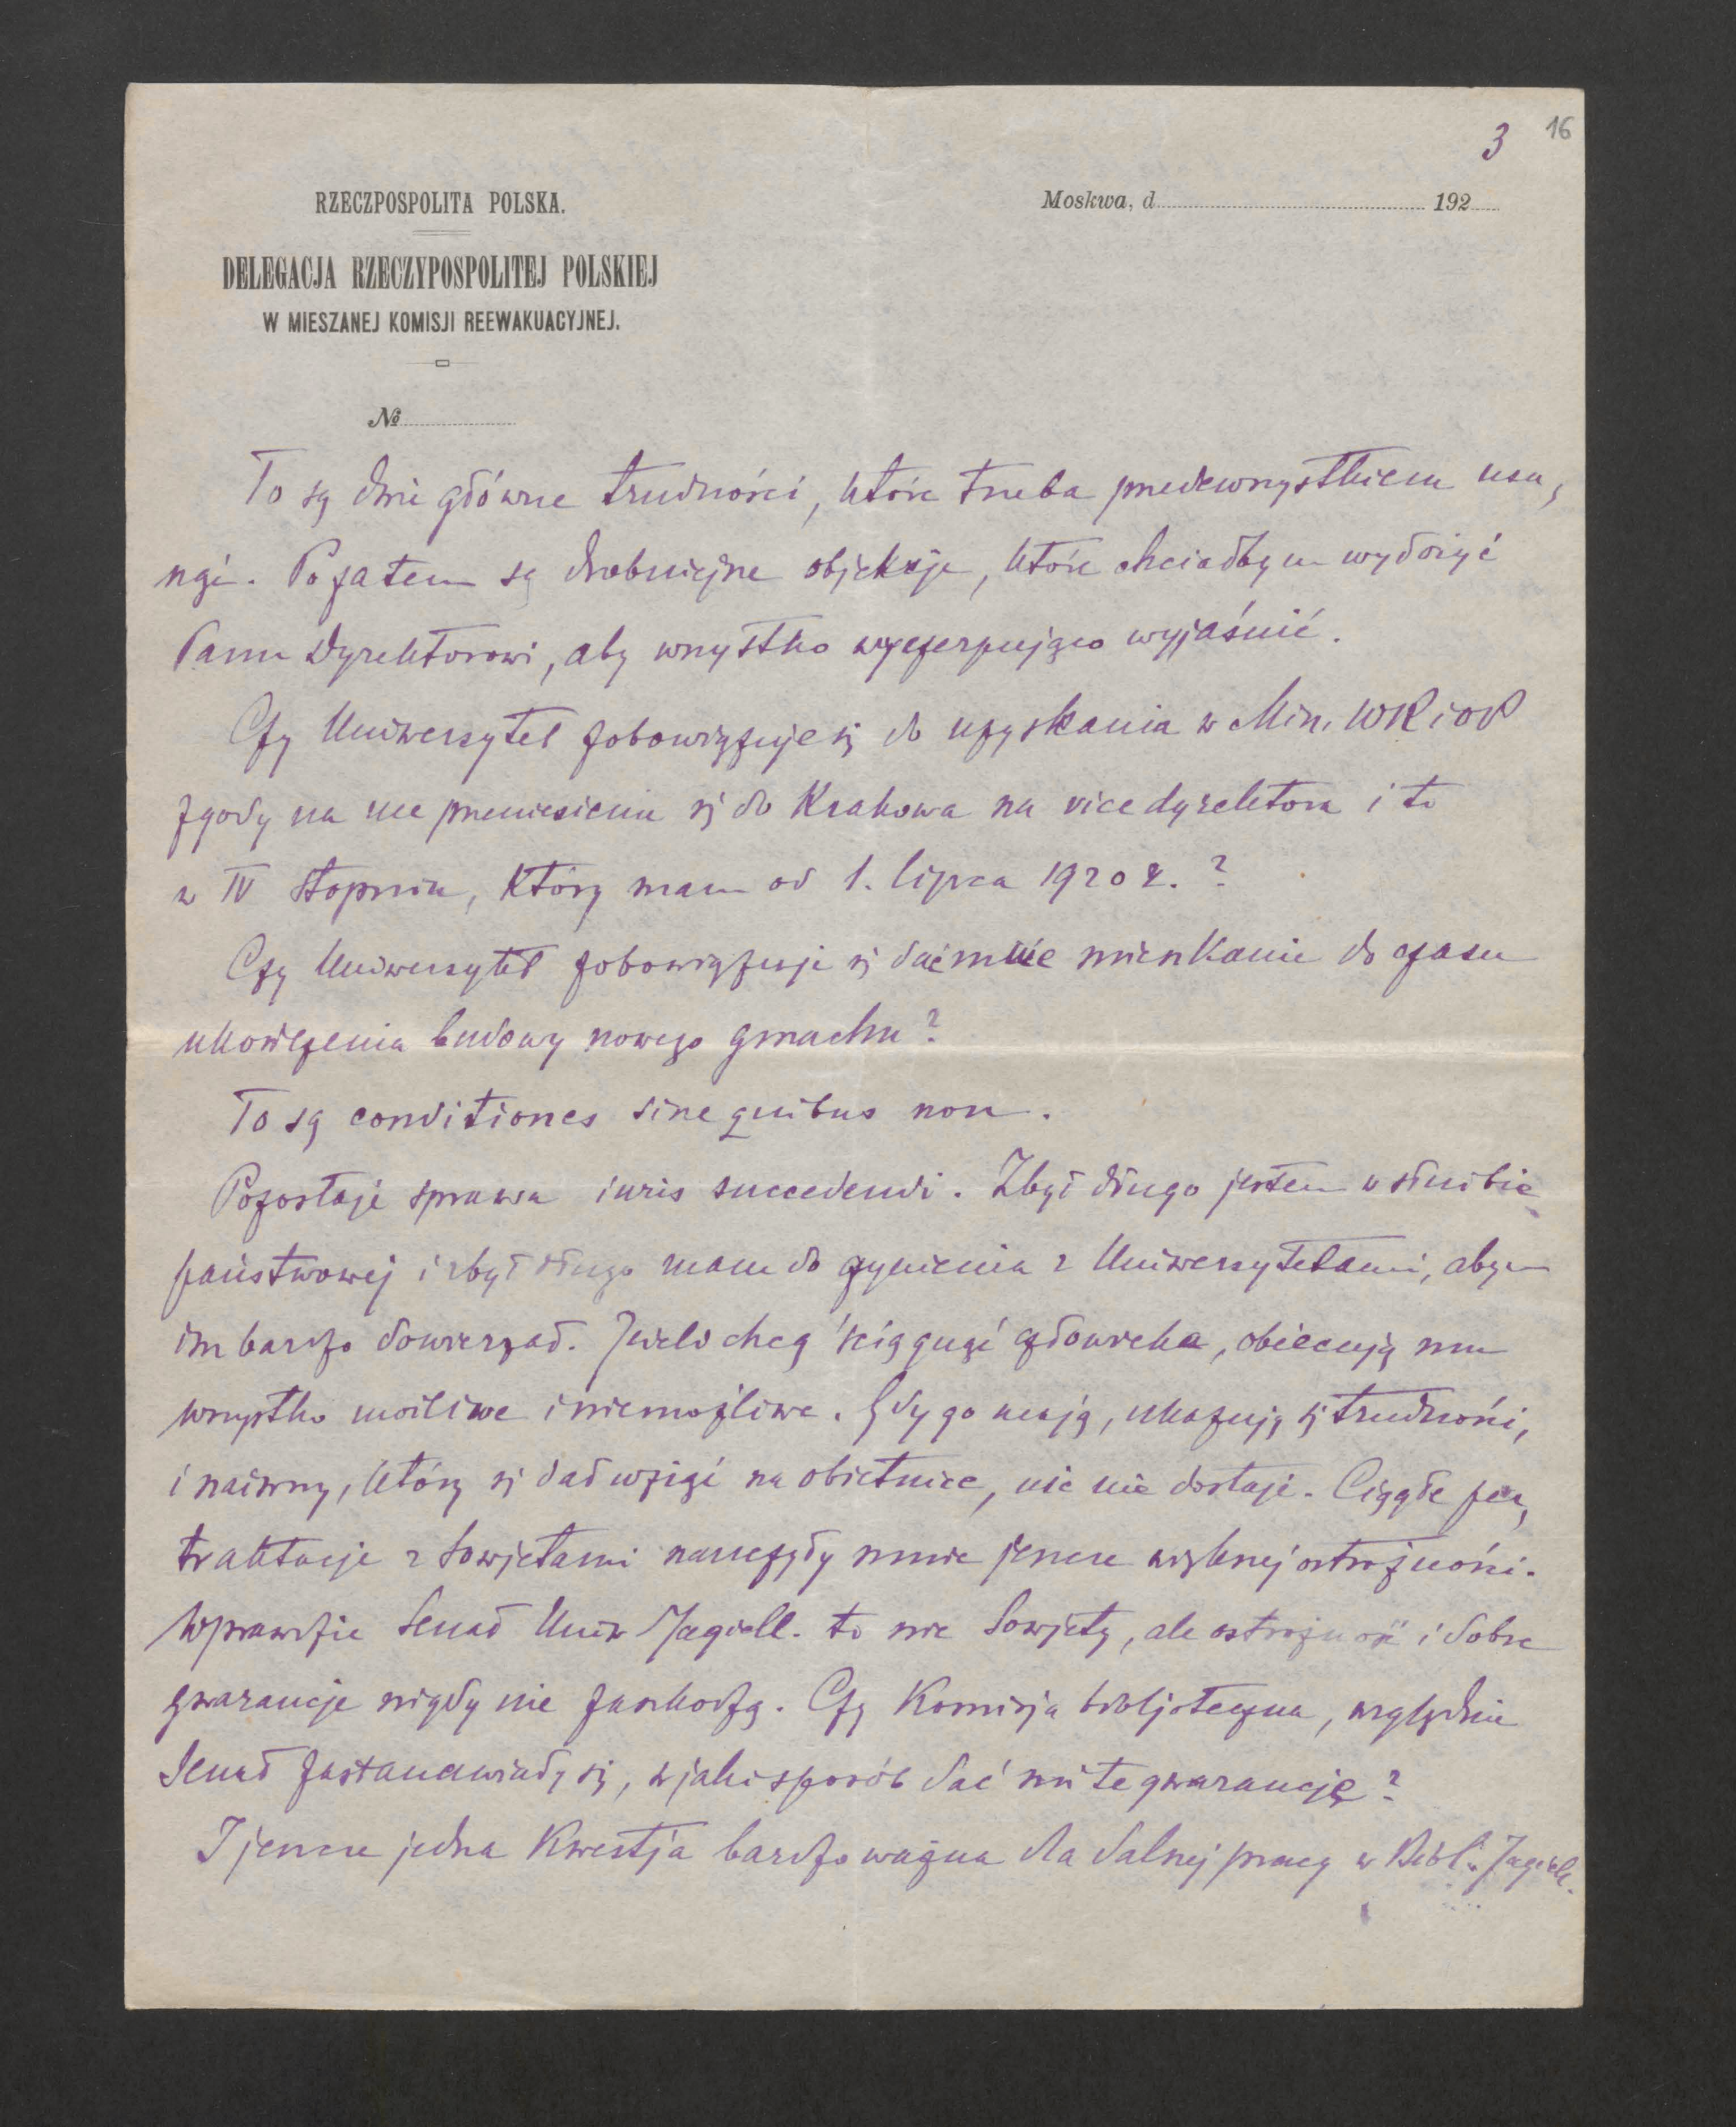 3 16
RZECZPOSPOLITA POLSKA.
Moskwa, d. 192
DELEGACJA RZECZYPOSPOLITEJ POLSKIEJ
W MIESZANEJ KOMISJI REEWAKUACYJNEJ.
№
To są dwie główne trudności, które trzeba przedewszystkiem usu,
nąć. Pozatem są drobniejsze objekcje, które chciałbym wyłożyć
Panu Dyrektorowi, aby wszystko wyczerpująco wyjaśnić.
Czy Uniwersytet zobowiązuje się do uzyskania w Min. WRiOP
zgody na me przeniesienie się do Krakowa na vicedyrektora i to
w IV stopniu, który mam od 1. lipca 1920 r.?
Czy Uniwersytet zobowiązuje się dać mnie mieszkanie do czasu
ukończenia budowy nowego gmachu?
To są conditiones sine quibus non.
Pozostaje sprawa iuris succedendi. Zbyt długo jestem w służbie
państwowej i zbyt długo mam do czynienia z Uniwersytetami, abym
im bardzo dowierzał. Jeżeli chcą ściągnąć człowieka, obiecują mu
wszystko możliwe i niemożliwe. Gdy go mają, ukazują się trudności,
i naiwny, który się dał wziąć na obietnice, nic nie dostaje. Ciągłe per,
traktacje z Sowjetami nauczyły mnie jeszcze większej ostrożności.
Wprawdzie Senat Uniw Jagiell. to nie Sowjety, ale ostrożność i dobre
gwarancje nigdy nie zaszkodzą. Czy Komisja bibljoteczna, względnie
Senat zastanawiały się, w jaki sposób dać mi te gwarancję?
I jeszcze jedna kwestja bardzo ważna dla dalszej pracy w Bibl. Jagiell.